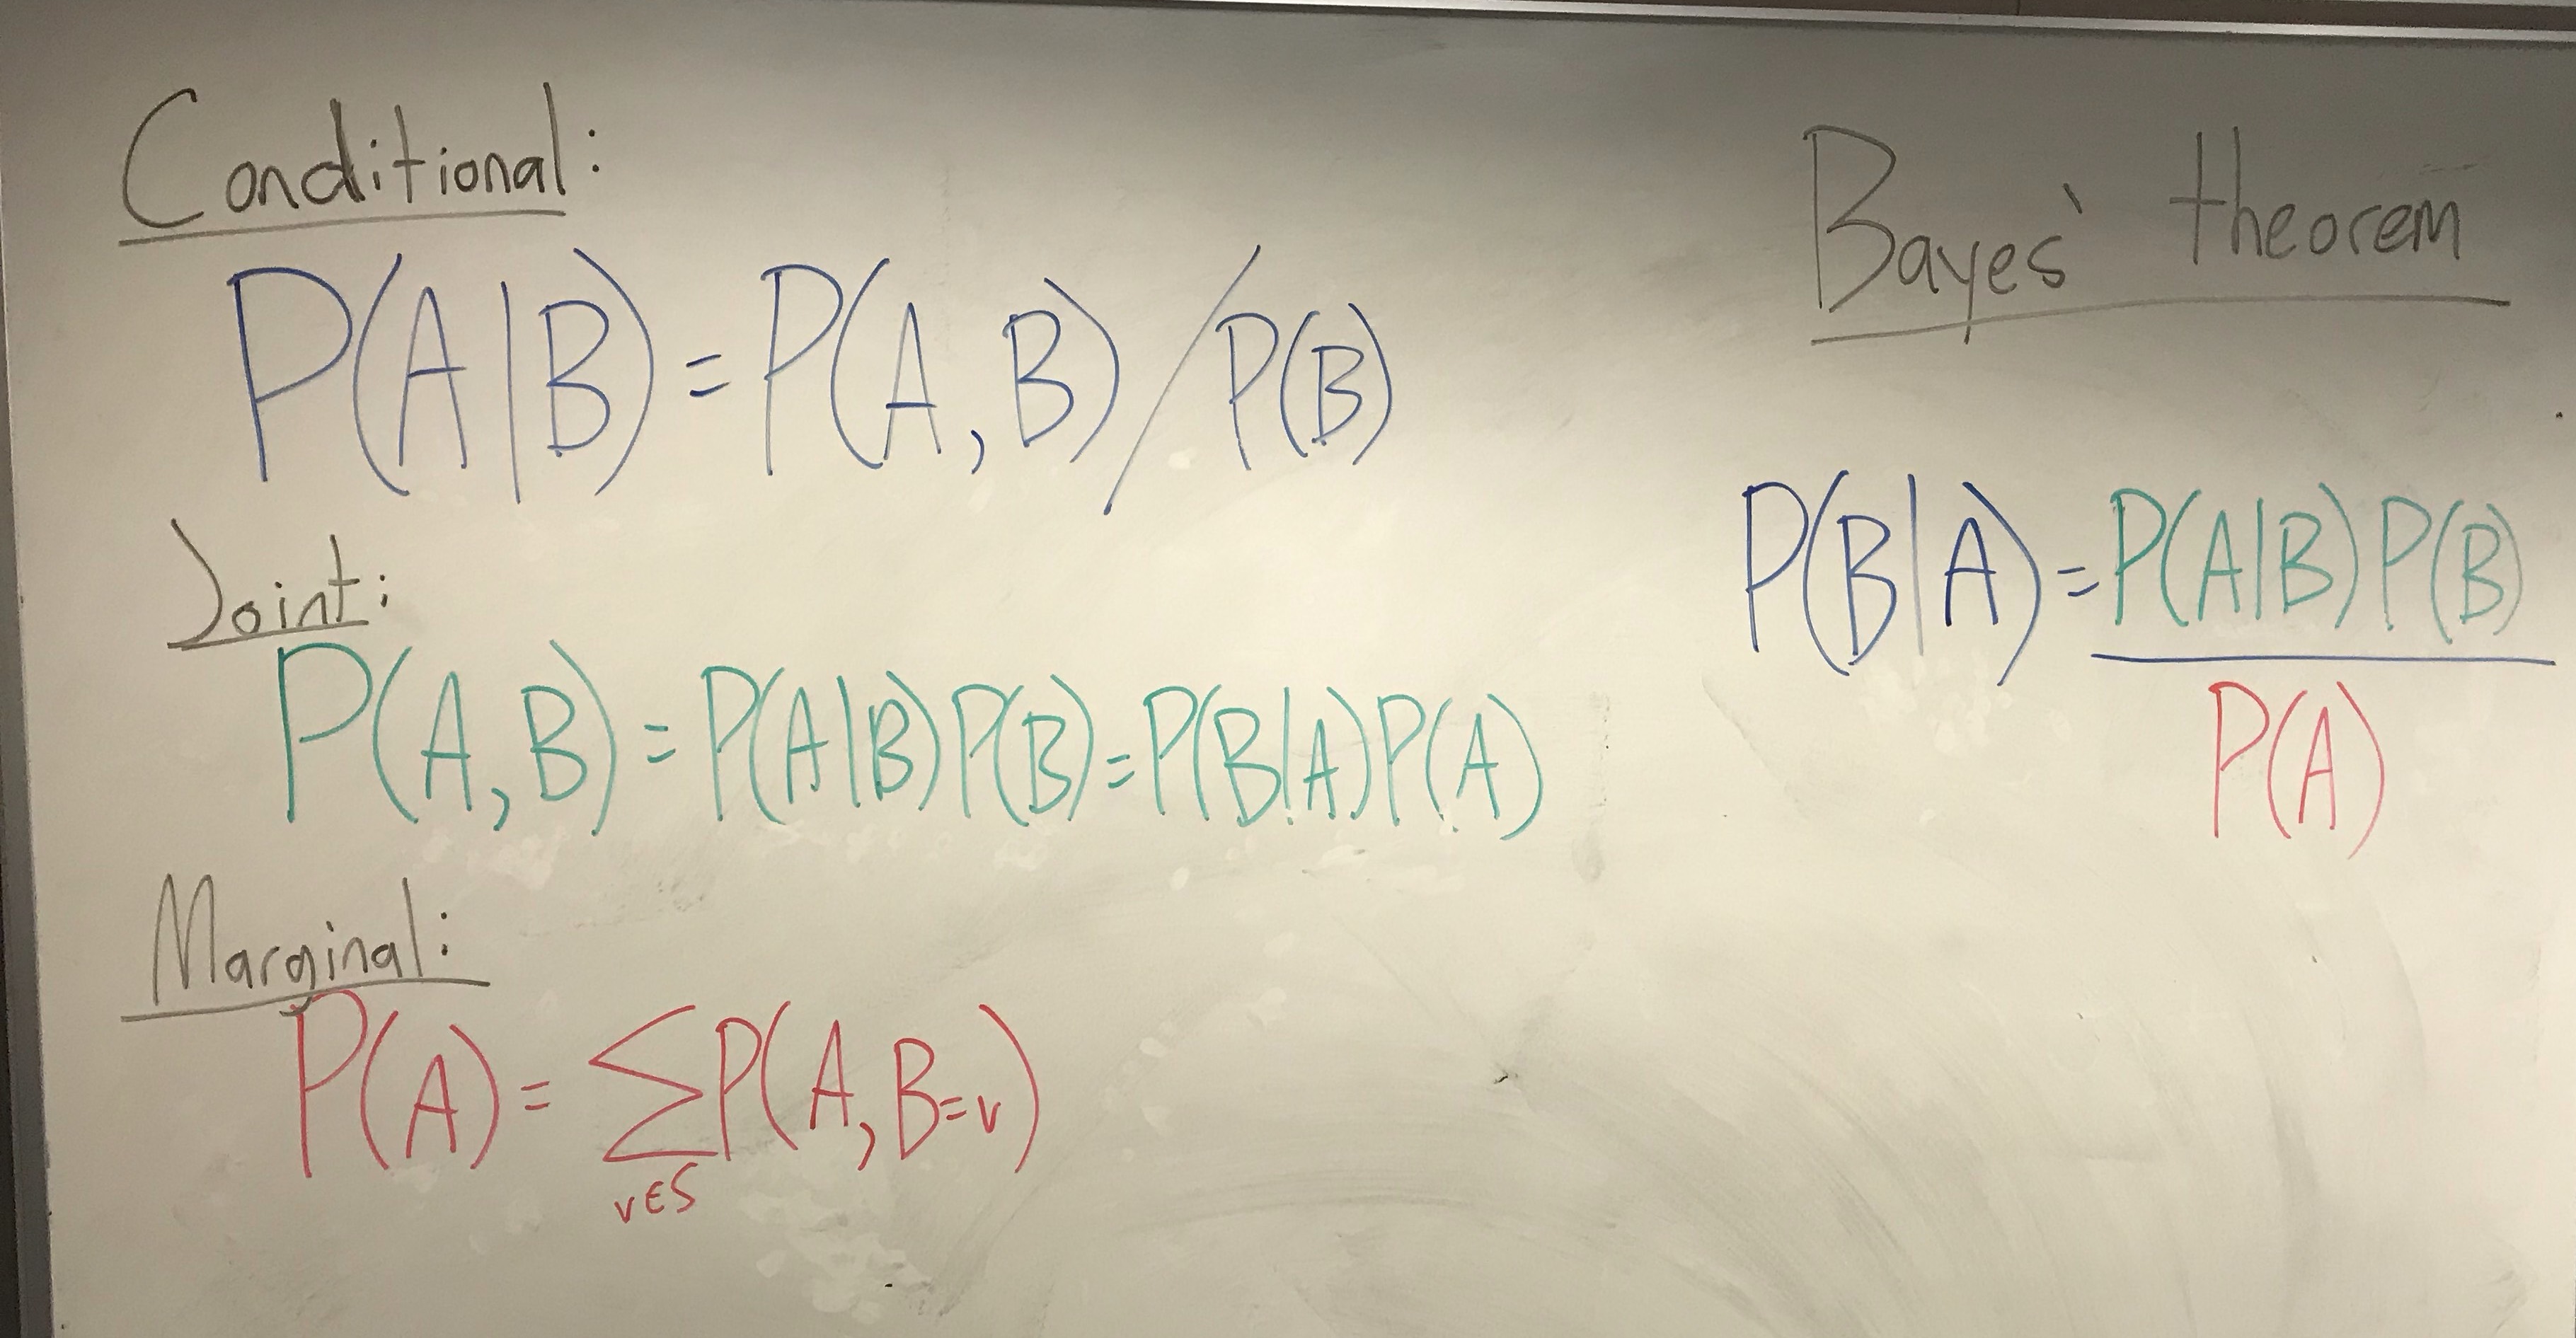 Conditional:
P(A|B) = P(A,B)/P(B)
Joint:
P(A,B) = P(A|B)P(B) = P(B|A)P(A)
Marginal:
P(A) = ∑P(A,B=v)
v∈S
Bayes' theorem
P(B|A) = P(A|B)P(B)
P(A)